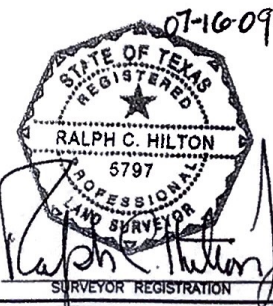 07-16-09
STATE OF TEXAS
REGISTERED
RALPH C. HILTON
5797
PROFESSIONAL
LAND SURVEYOR
Ralph C. Hilton
SURVEYOR REGISTRATION